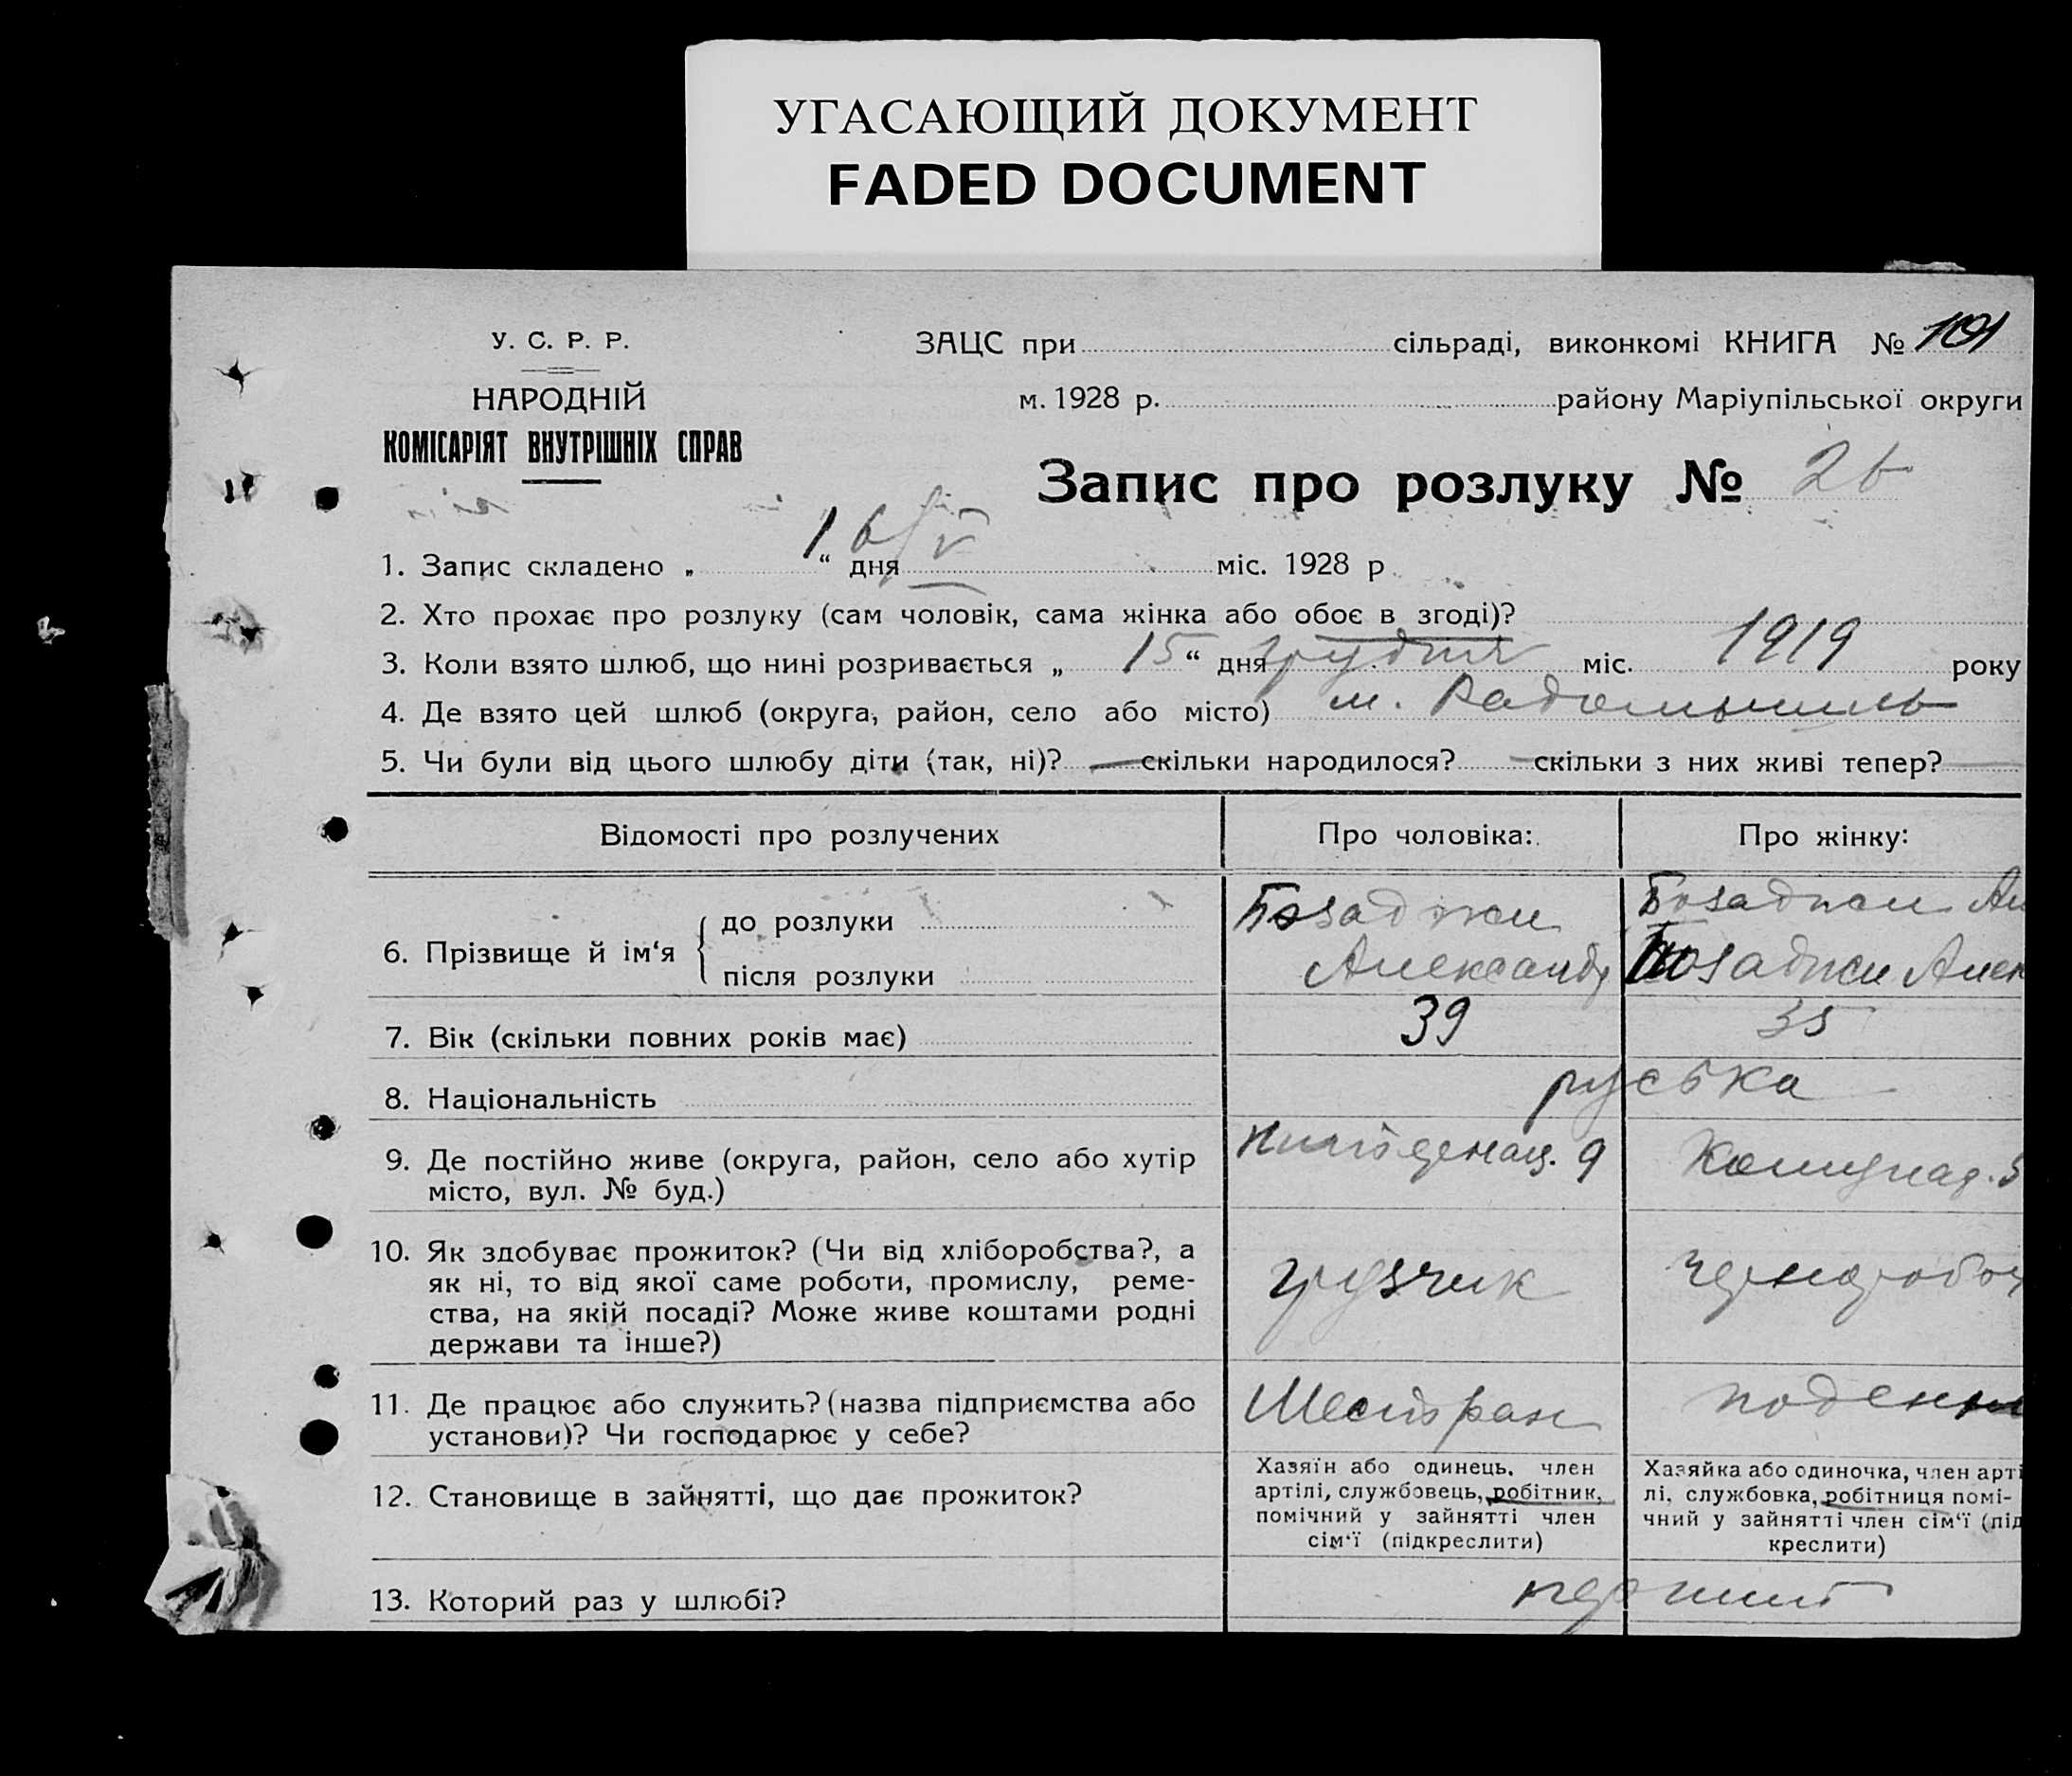 УГАСАЮЩИЙ ДОКУМЕНТ
FADED DOCUMENT
У. С. Р. Р.
НАРОДНІЙ
КОМІСАРІЯТ ВНУТРІШНІХ СПРАВ
ЗАЦС при сільраді, виконкомі КНИГА № 101
м. 1928 р. району Маріупільської округи
Запис про розлуку №
1. Запис складено „ “ дня міс. 1928 р
2. Хто прохає про розлуку (сам чоловік, сама жінка або обоє в згоді)?
3. Коли взято шлюб, що нині розривається „ 15 “ дня грудня міс. 1919 року
4. Де взято цей шлюб (округа, район, село або місто) м. Радомышль
5. Чи були від цього шлюбу діти (так, ні)? — скільки народилося? — скільки з них живі тепер? —
Відомості про розлучених
Про чоловіка:
Про жінку:
6. Прізвище й ім‘я { до розлуки
після розлуки
Бозаджи
Александр
Бозаджи
Бозаджи Алек
7. Вік (скільки повних років має)
39
35
8. Національність
руська
9. Де постійно живе (округа, район, село або хутір
місто, вул. № буд.)
10. Як здобуває прожиток? (Чи від хліборобства?, а
як ні, то від якої саме роботи, промислу, реме-
ства, на якій посаді? Може живе коштами родні
держави та інше?)
грузчик
чернороб
11. Де працює або служить? (назва підприємства або
установи)? Чи господарює у себе?
поденн
12. Становище в зайнятті, що дає прожиток?
Хазяїн або одинець, член
артілі, службовець, робітник,
помічний у зайнятті член
сім‘ї (підкреслити)
Хазяйка або одиночка, член арті
лі, службовка, робітниця помі-
чний у зайнятті член сім‘ї (під
креслити)
13. Которий раз у шлюбі?
перший